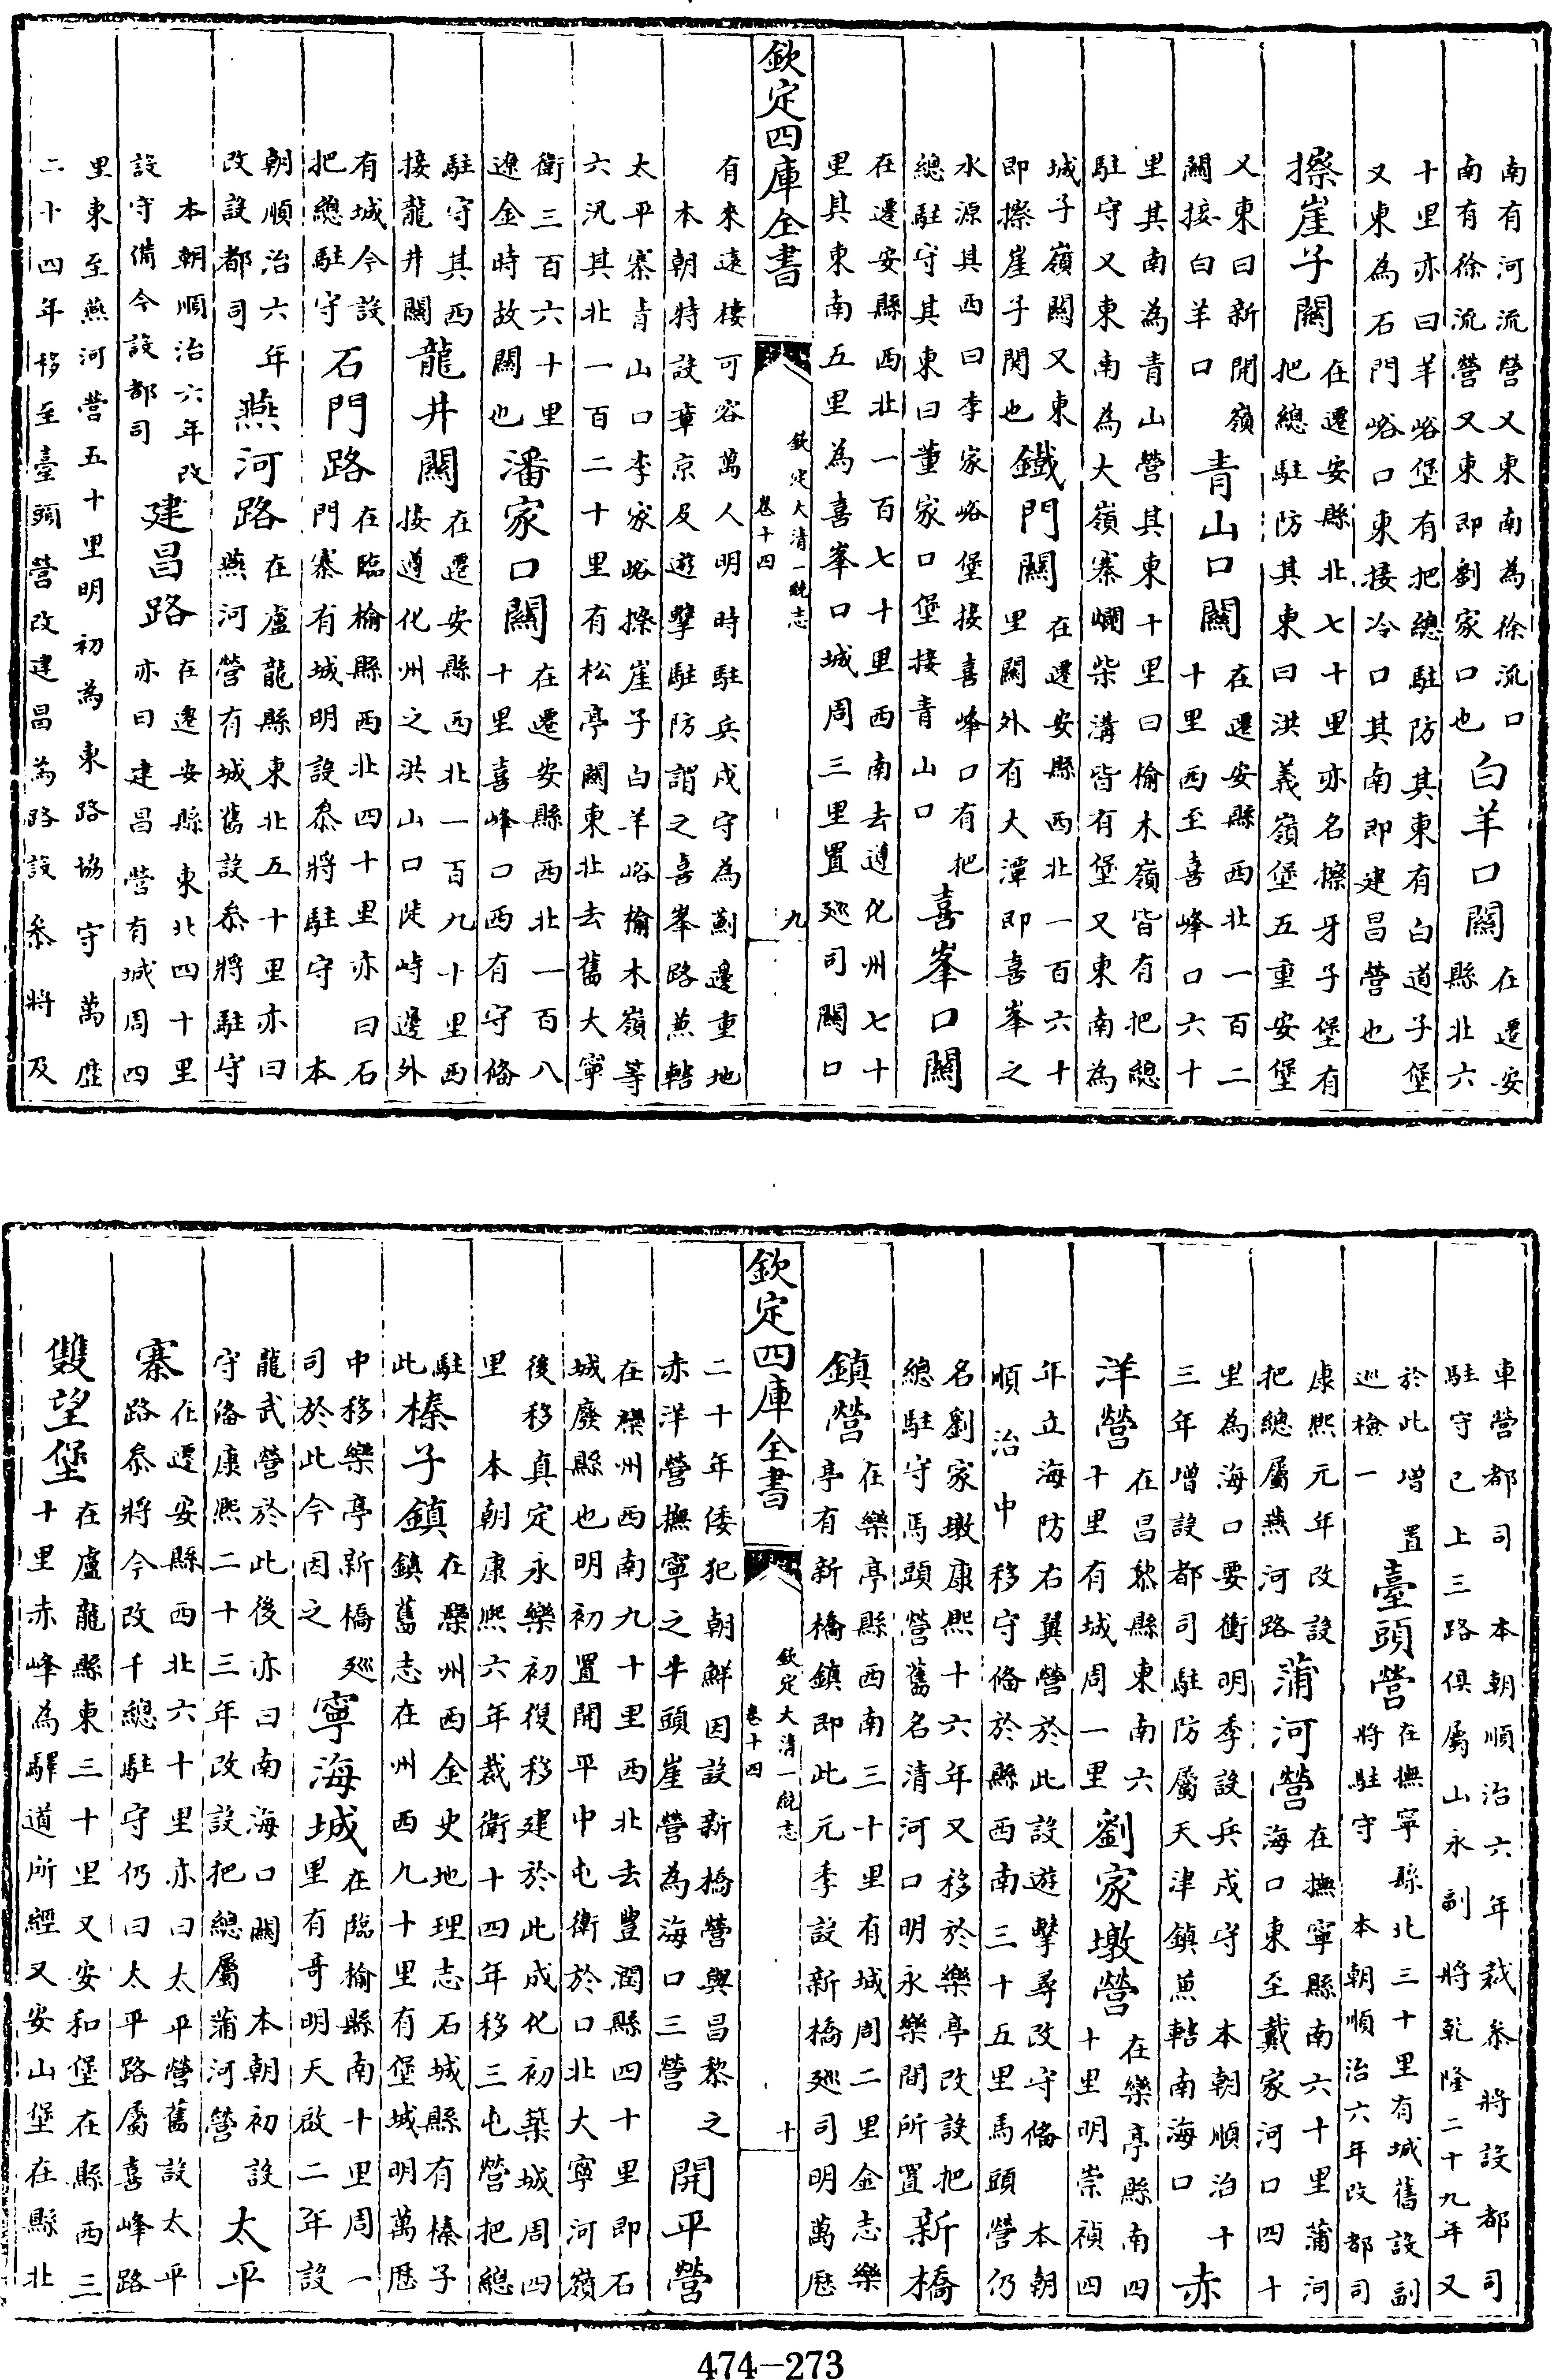 南有河流營又東南為徐流口
南有徐流營又東即劉家口也
白羊口關
在遷安
縣北六
十里亦曰羊峪堡有把總駐防其東有白道子堡
又東為石門峪口東接冷口其南即建昌營也
擦崖子關
在遷安縣北七十里亦名擦牙子堡有
把總駐防其東曰洪義嶺堡五重安堡
又東曰新開嶺
關接白羊口
青山口關
在遷安縣西北一百二
十里西至喜峰口六十
里其南為青山營其東十里曰榆木嶺皆有把總
駐守又東南為大嶺寨爛柴溝皆有堡又東南為
城子嶺關又東
即擦崖子関也
鐵門關
在遷安縣西北一百六十
里關外有大潭即喜峯之
水源其西曰李家峪堡接喜峰口有把
總駐守其東曰董家口堡接青山口
喜峯口關
在遷安縣西北一百七十里西南去遵化州七十
里其東南五里為喜峯口城周三里置廵司關口
欽定四庫全書
欽定大清一統志
卷十四
九
有來遠樓可容萬人明時駐兵戍守為薊邊重地
本朝特設章京及遊擊駐防謂之喜峯路兼轄
太平寨青山口李家峪擦崖子白羊峪榆木嶺等
六汛其北一百二十里有松亭關東北去舊大寧
衛三百六十里
遼金時故關也
潘家口關
在遷安縣西北一百八
十里喜峰口西有守備
駐守其西
接龍井關
龍井關
在遷安縣西北一百九十里西
接遵化州之洪山口陡峙邊外
有城今設
把總駐守
石門路
在臨榆縣西北四十里亦曰石
門寨有城明設叅將駐守 本
朝順治六年
改設都司
燕河路
在盧龍縣東北五十里亦曰
燕河營有城舊設叅將駐守
本朝順治六年改
設守備今設都司
建昌路
在遷安縣東北四十里
亦曰建昌營有城周四
里東至燕河營五十里明初為東路協守萬歷
二十四年移至臺頭營改建昌為路設叅將及
車營都司 本朝順治六年裁叅將設都司
駐守已上三路俱屬山永副將乾隆二十九年又
於此增置
巡檢一
臺頭營
在撫寧縣北三十里有城舊設副
將駐守 本朝順治六年改都司
康熙元年改設
把總屬燕河路
蒲河營
在撫寧縣南六十里蒲河
海口東至戴家河口四十
里為海口要衝明季設兵戍守 本朝順治十
三年增設都司駐防屬天津鎮兼轄南海口
赤
洋營
在昌黎縣東南六
十里有城周一里
劉家墩營
在樂亭縣南四
十里明崇禎四
年立海防右翼營於此設遊擊尋改守備 本朝
順治中移守備於縣西南三十五里馬頭營仍
名劉家墩康熙十六年又移於樂亭改設把
總駐守馬頭營舊名清河口明永樂間所置
新橋
鎮營
在樂亭縣西南三十里有城周二里金志樂
亭有新橋鎮即此元季設新橋廵司明萬歷
欽定四庫全書
欽定大清一統志
卷十四
十
二十年倭犯朝鮮因設新橋營與昌黎之
赤洋營撫寧之牛頭崖營為海口三營
開平營
在灤州西南九十里西北去豐潤縣四十里即石
城廢縣也明初置開平中屯衛於口北大寧河嶺
後移真定永樂初復移建於此成化初築城周四
里 本朝康熙六年裁衛十四年移三屯營把總
駐
此
榛子鎮
在灤州西金史地理志石城縣有榛子
鎮舊志在州西九十里有堡城明萬歷
中移樂亭新橋廵
司於此今因之
寧海城
在臨榆縣南十里周一
里有哥明天啟二年設
龍武營於此後亦曰南海口關 本朝初設
守備康熙二十三年改設把總屬蒲河營
太平
寨
在遷安縣西北六十里亦曰太平營舊設太平
路叅將今改千總駐守仍曰太平路屬喜峰路
雙望堡
在盧龍縣東三十里又安和堡在縣西三
十里赤峰為驛道所經又安山堡在縣北
474-273